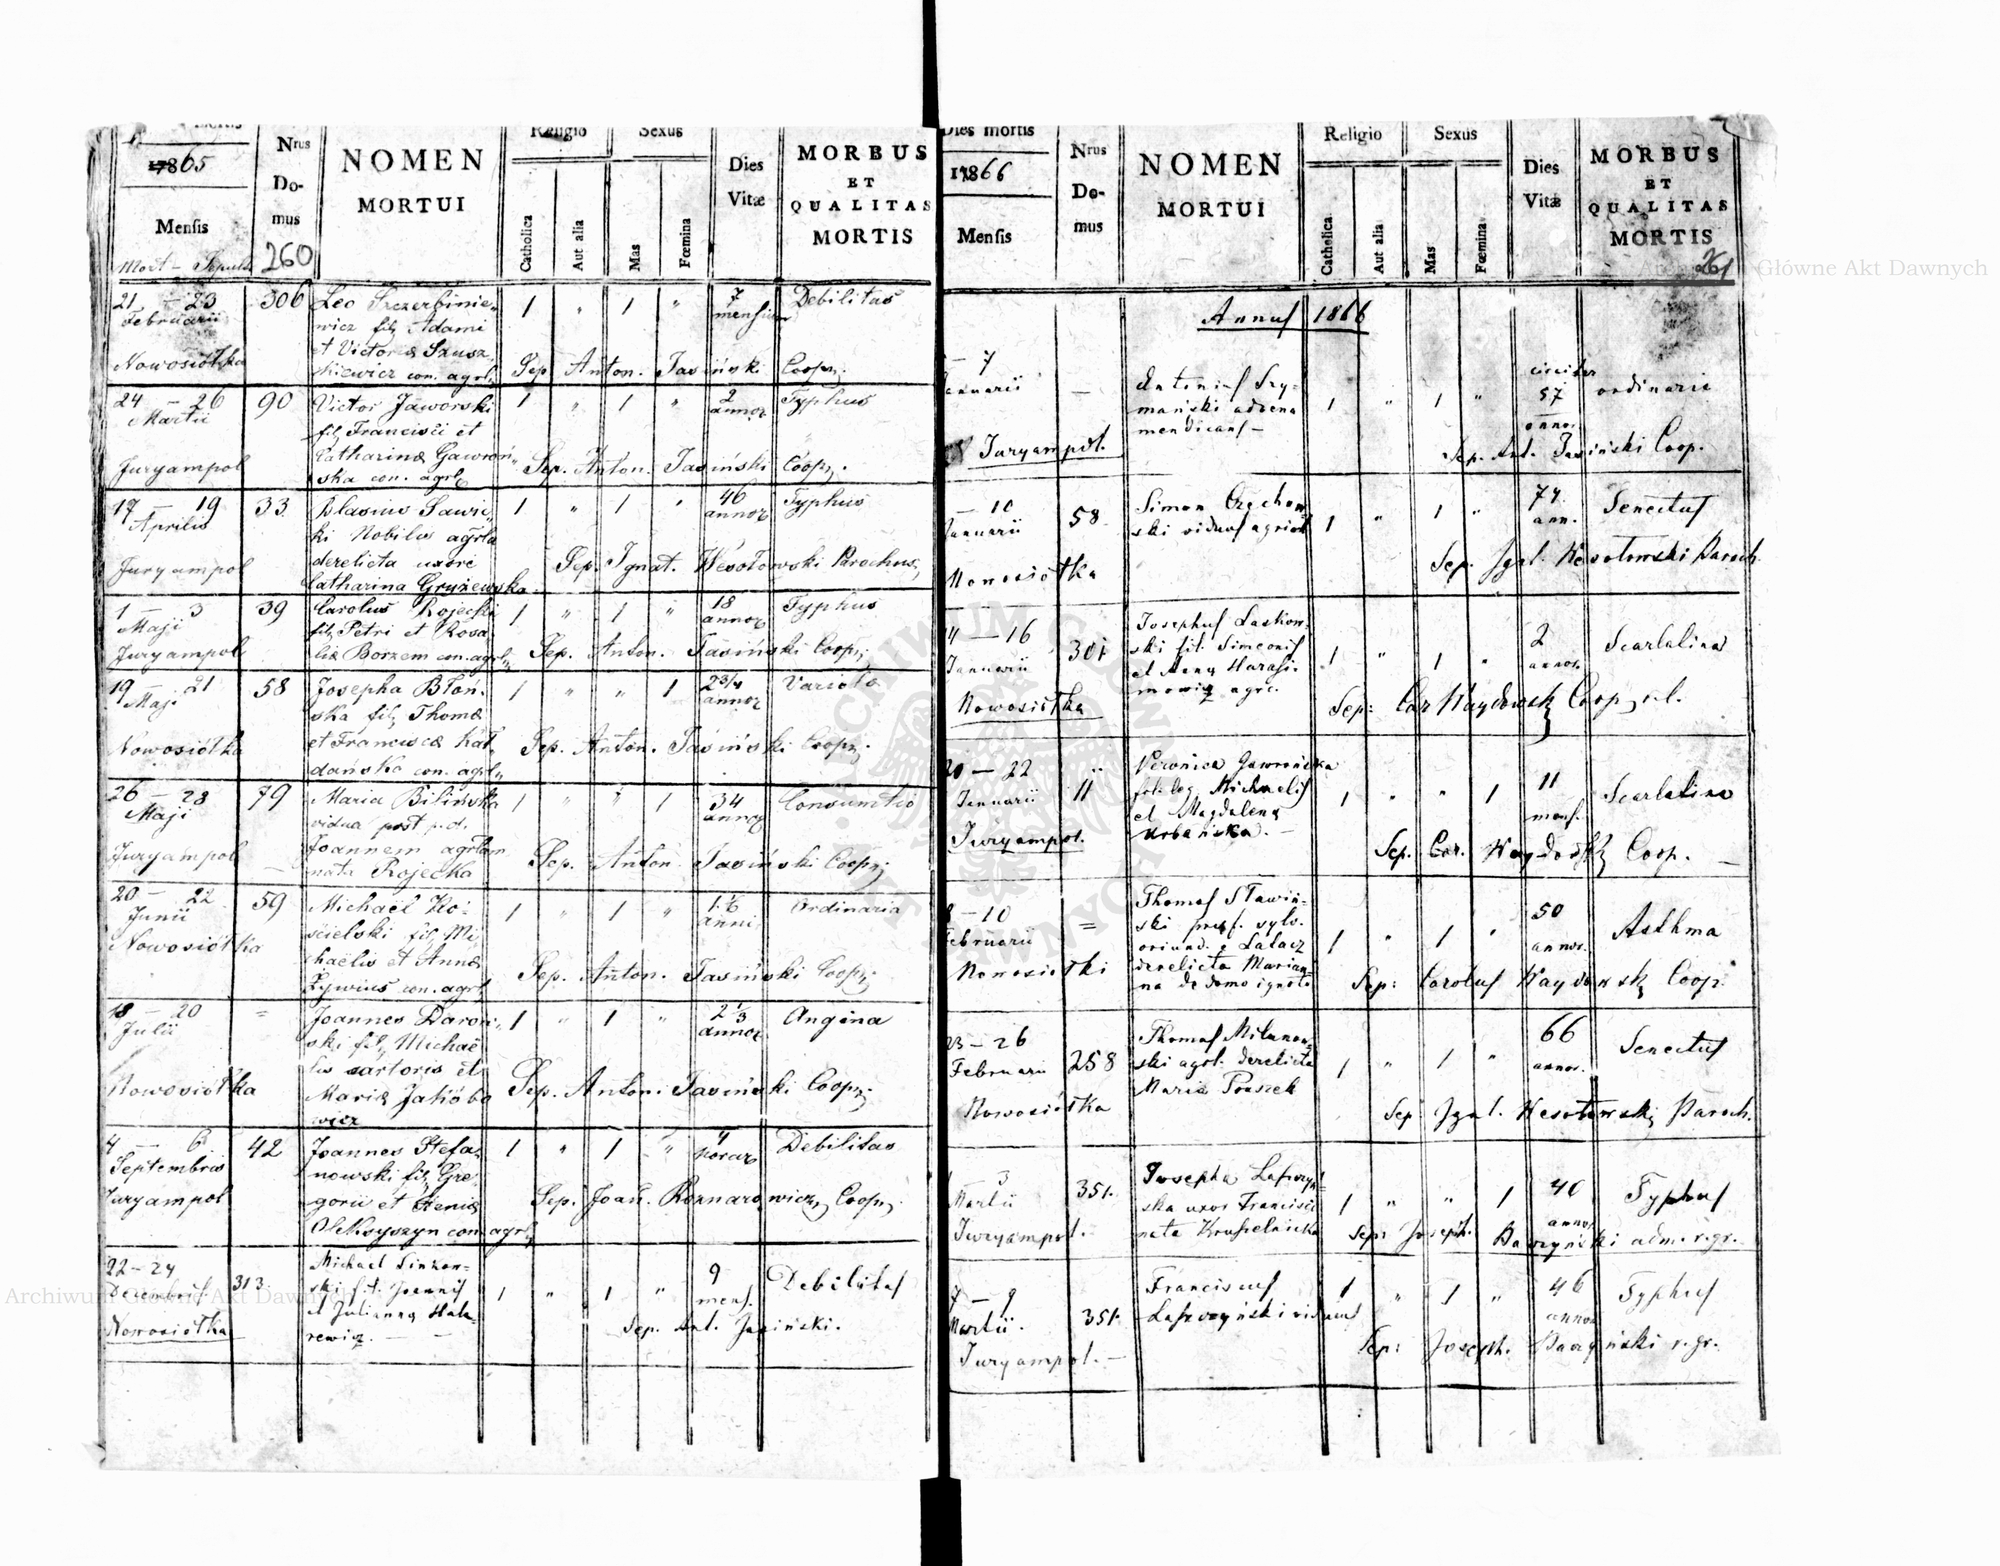 1865
Nrus
Do-
mus
260
NOMEN
MORTUI
Religio
Sexus
Catholica
Aut alia
Mas
Fœmina
Dies
Vitæ
MORBUS
ET
QUALITAS
MORTIS
Mensis
Mort – Sepult
21 – 23
Februarii
306
Leo Szczerbinie-
wicz fil. Adami
et Victoriæ Szusz
kiewicz con. agrl.
1 " 1 "
7
mensium
Debilitas
Nowosiółka
Sep. Anton. Jasiński Coop.
24 – 26
Martii
90
Victor Jaworski
fil. Francisci et
Catharinæ Gawroń
ska con. agrl.
1 " 1 "
2
annor
Typhus
Juryampol
Sep. Anton. Jasiński Coop.
17 – 19
Aprilis
33
Blasius Sawic
ki Nobilis agrla
derelicta uxore
Catharina Gryżewska
1 " 1 "
46
annor
Typhus
Juryampol
Sep. Ignat. Wesołowski Parochus
1 – 3
Maji
Juryampol
39
Carolus Rojecki
fil. Petri et Rosa
liæ Borzem con. agrl.
1 " 1 "
18
annor
Typhus
Sep. Anton. Jasiński Coop.
19 – 21
Maji
58
Josepha Błoń-
ska fil. Thomæ
et Franciscæ Kał
dańska con. agrl.
1 " " 1
2 3/4
annor
Variola
Nowosiółka
Sep. Anton. Jasiński Coop.
26 – 28
Maji
79
Maria Bilińska
vidua post p.d.
Joannem agrlam
nata Rojecka
1 " " 1
34
annor
Consumtio
Juryampol
Sep. Anton. Jasiński Coop.
20 – 22
Junii
Nowosiółka
59
Michael Ko-
ścielski fil. Mi
chaëlis et Annæ
Żywius con. agrl.
1 " 1 "
1 1/6
anni
Ordinaria
Sep. Anton. Jasiński Coop.
18 – 20
Julii
=
Joannes Daron
ski fil. Michaë
lis sartoris et
Mariæ Jakóbo
wicz
1 " 1 "
2 1/3
annor
Angina
Nowosiółka
Sep. Anton. Jasiński Coop.
4 – 6
Septembris
Juryampol
42
Joannes Stefa
nowski fil. Gre
gorii et Xeniæ
Oleksyszyn con. agrl.
1 " 1 "
4
horar
Debilitas
Sep. Joan. Bernarowicz Coop.
22 – 24
Decembris
Nowosiółka
313
Michael Sinkow-
ski fil. Joannis
et Julianna Hala-
rewicz.
1 " 1 "
9
mens.
Debilitas
Sep. Ant. Jasiński.
Dies mortis
1866
Mensis
Nrus
Do-
mus
NOMEN
MORTUI
Religio
Sexus
Catholica
Aut alia
Mas
Fœmina
Dies
Vitæ
MORBUS
ET
QUALITAS
MORTIS
261
Annus 1866
– 7
Januarii
Juryampol.
–
Antonius Szy-
mański advena
mendicans –
1 " 1 "
circiter
57
annor.
ordinaria
Sep. Ant. Jasiński Coop.
– 10
Januarii
Nowosiółka
58
Simon Orzechow
ski viduus agricol
1 " 1 "
74
ann.
Senectus
Sep. Ignat. Wesołowski Paroch.
14 – 16
Januarii
Nowosiółka
301
Josephus Laskow-
ski fil. Simeonis
et Anna Harasi-
mowicz agrc.
1 " 1 "
2
annor.
Scarlatina
Sep: Car Haydowsk Coop r.l.
20 – 22
Januarii
Juryampol.
11
Veronica Gawrońska
Michaelis
et Magdalena
Urbańska. –
1 " " 1
11
mens.
Scarlatina
Sep. Car. Haydowsk Coop. –
8 – 10
Februarii
Nowosiółki
=
Thomas Sławiń-
ski præf. sylv.
oriund. e Łatacz
derelicta Marian-
na de domo ignoto
1 " 1 "
50
annor.
Asthma
Sep: Carolus Haydowsk Coop.
23 – 26
Februarii
Nowosiółka
258
Thomas Milanow-
ski agrl. derelicta
Maria Praszek
1 " 1 "
66
annor.
Senectus
Sep. Ignl. Wesołowski Paroch.
3
Martii
Juryampol.
351.
Josepha Lasczyń-
ska uxor Francisci
nata Kruszelnicka
1 " " 1
40
annor
Typhus
Sep: Joseph. Baczyński adm. r.gr.
7 – 9
Martii.
Juryampol. –
351.
Franciscus
Laszczyński viduus
1 " 1 "
46
annor
Typhus
Sep: Joseph. Baczyński r.gr.
Archiwum Główne Akt Dawnych
Archiwum Główne Akt Dawnych
ARCHIWUM GŁÓWNE AKT DAWNYCH